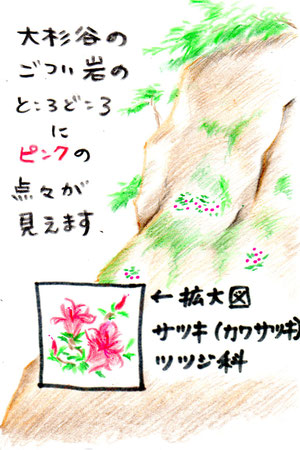 大杉谷の
ごつい岩の
ところどころ
に
ピンクの
点々が
見えます.
←拡大図
サツキ(カワサツキ)
ツツジ科